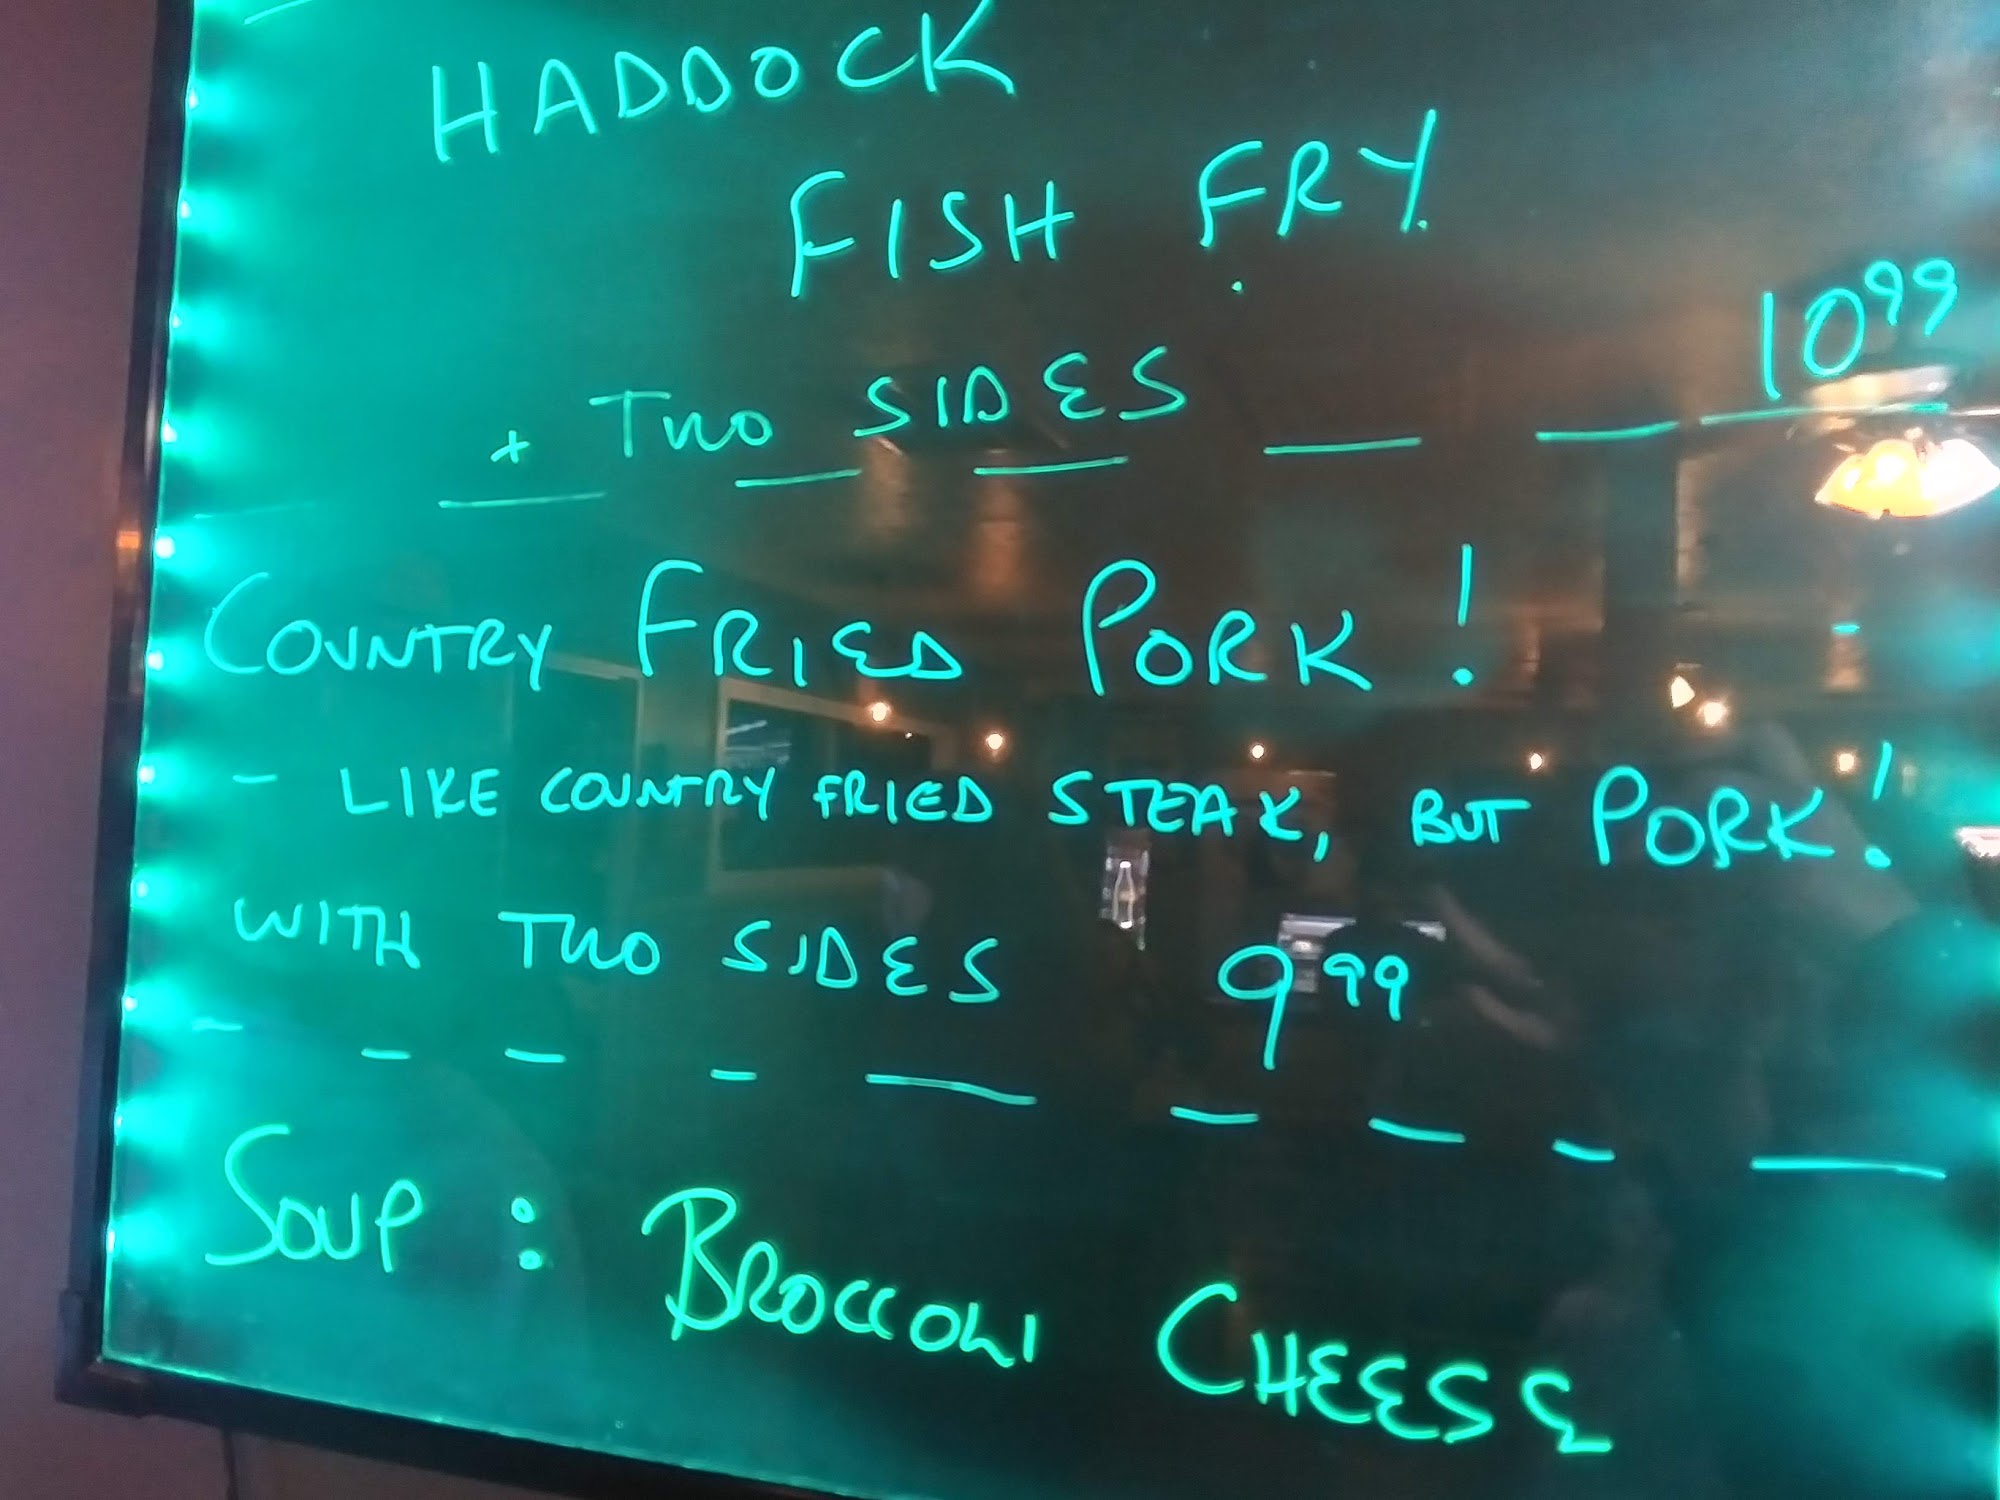 HADDOCK
FISH FRY
+ TWO SIDES 10⁹⁹
COUNTRY FRIED PORK!
- LIKE COUNTRY FRIED STEAK, BUT PORK!
WITH TWO SIDES 9⁹⁹
SOUP: BROCCOLI CHEESE